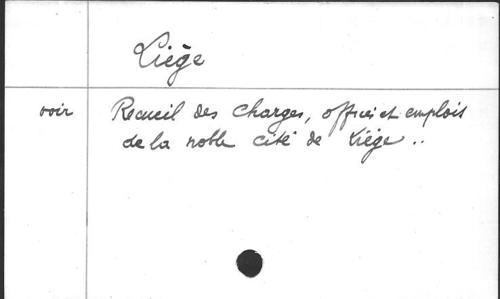 Liège
voir Recueil des charges, offices et emplois
de la noble cité de Liège ..